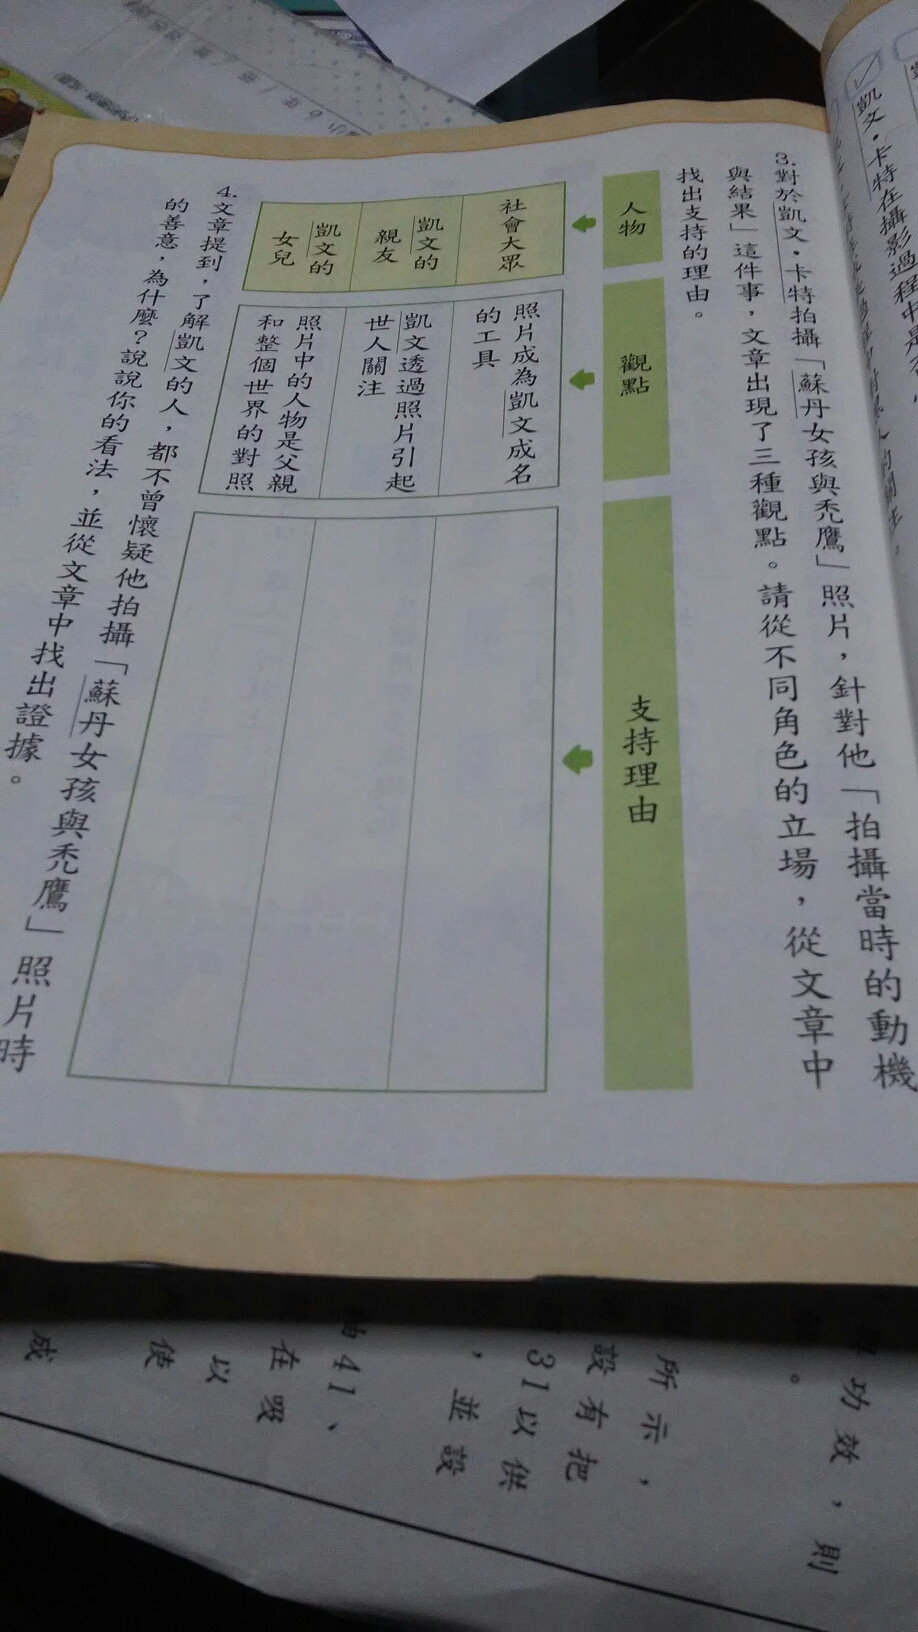 凱文・卡特在攝影過程中是
3.對於凱文・卡特拍攝「蘇丹女孩與禿鷹」照片，針對他「拍攝當時的動機
與結果」這件事，文章出現了三種觀點。請從不同角色的立場，從文章中
找出支持的理由。
人物
觀點
支持理由
社會大眾
照片成為凱文成名
的工具
凱文的
親友
凱文透過照片引起
世人關注
凱文的
女兒
照片中的人物是父親
和整個世界的對照
4.文章提到，了解凱文的人，都不曾懷疑他拍攝「蘇丹女孩與禿鷹」照片時
的善意，為什麼？說說你的看法，並從文章中找出證據。
功效，則
。
所示，
設有把
31以供
，並設
41、
在吸
以
使
成